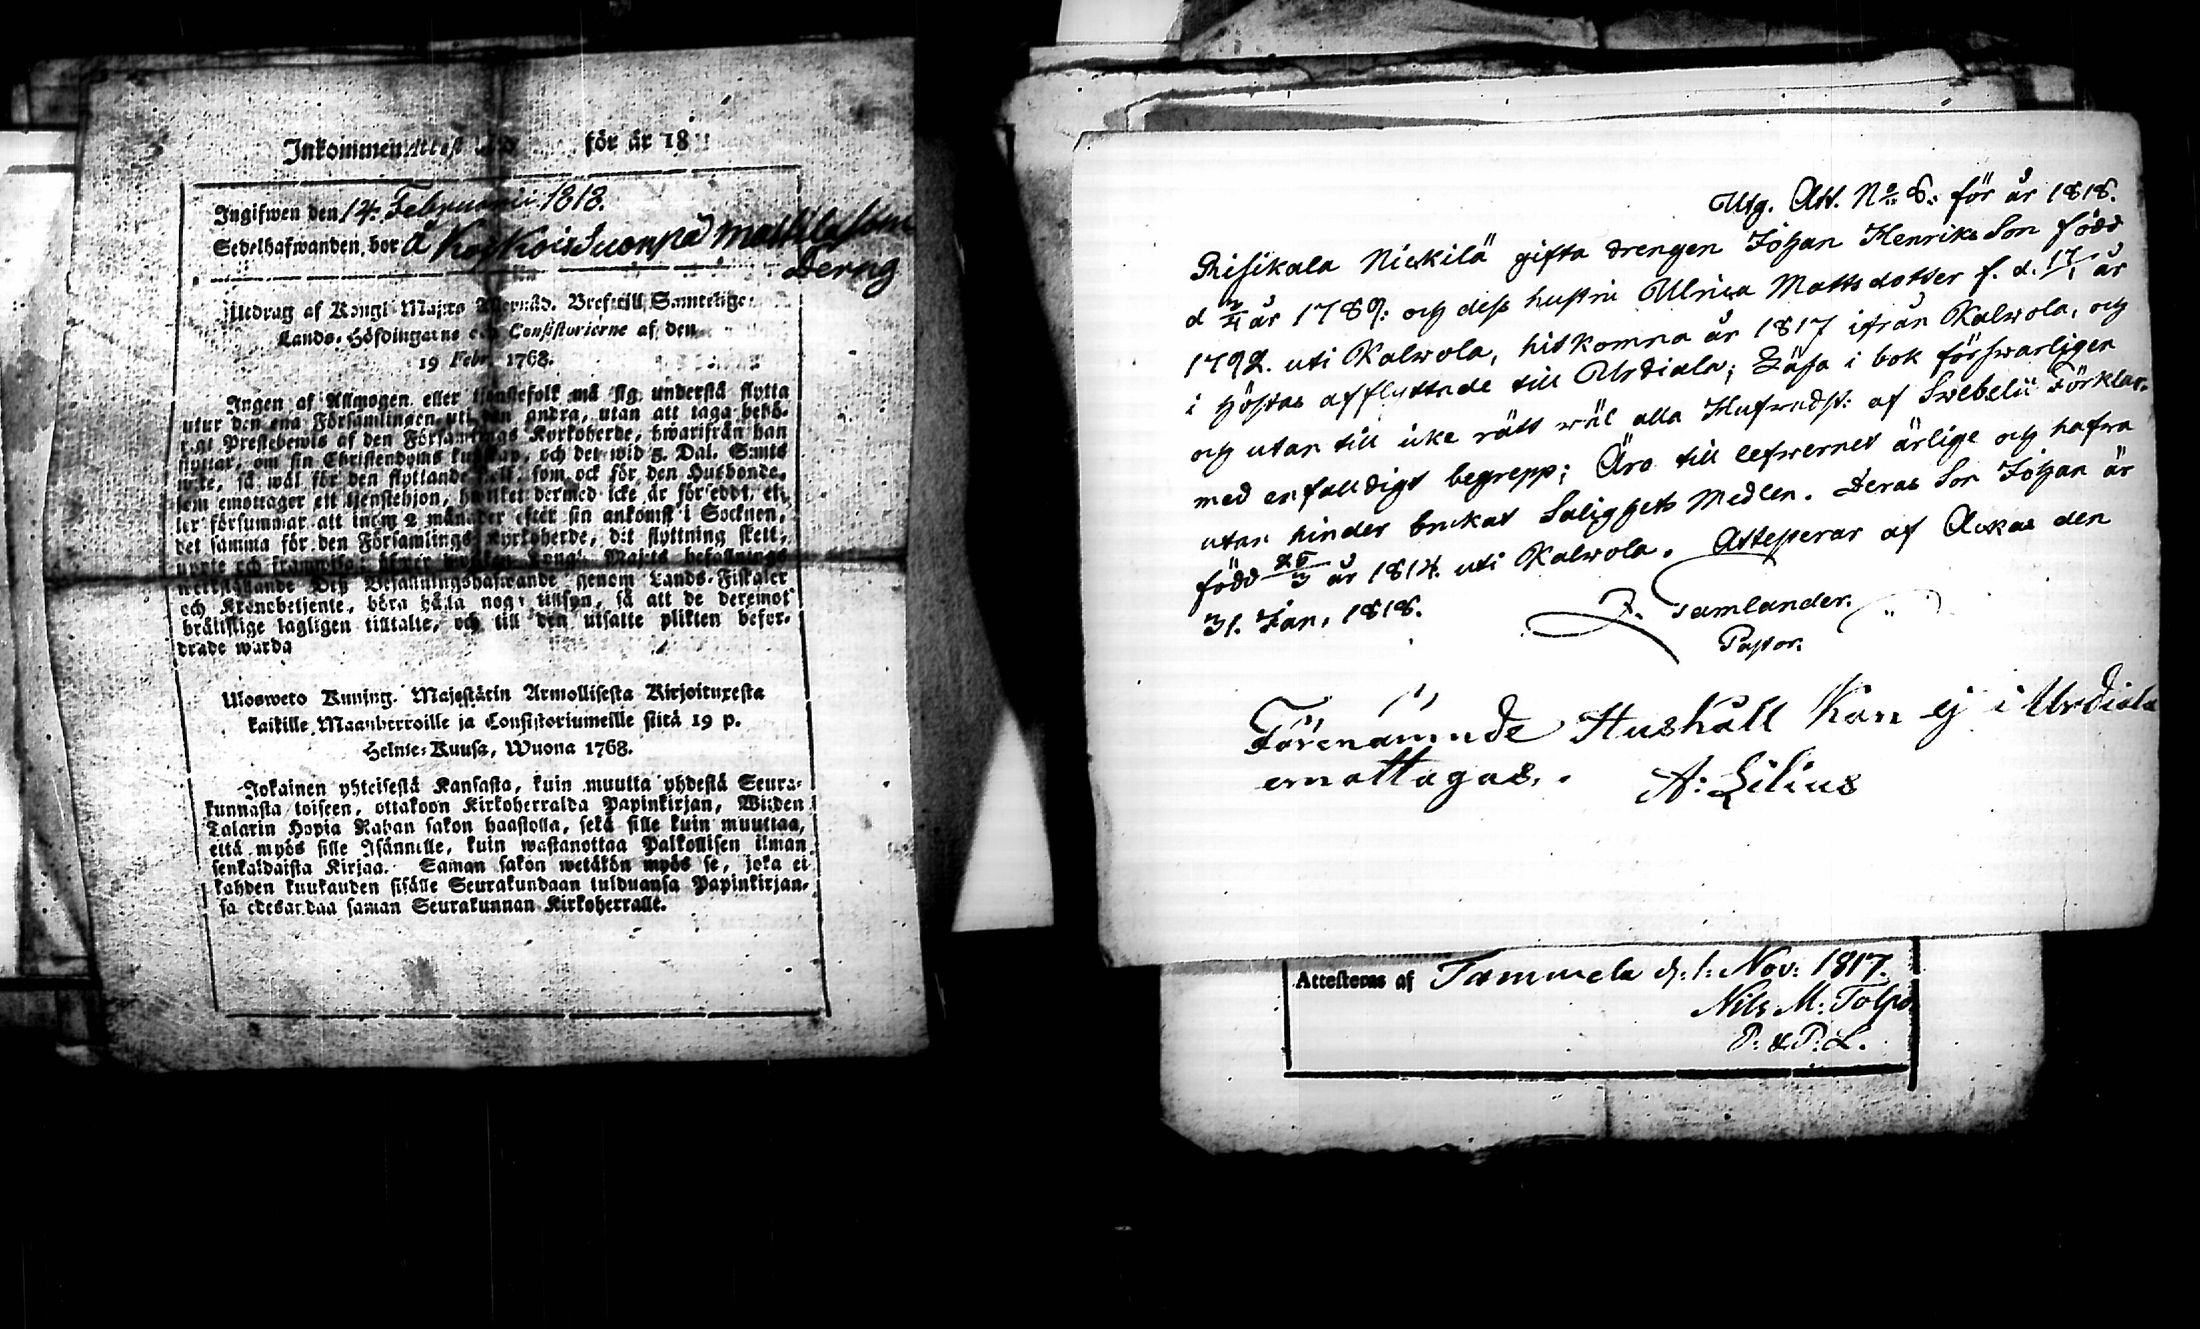 Inkommen Attest för år 18
Ingifwen den 14. Februarii 1818.
Sedelhafwanden, bor å
Dräng
Utdrag af Kongl. Maj:ts Allernåd. Bref till Samtelige
Lands-Höfdingarne och Consistorierne af den
19 Febr. 1768.
Ingen af Allmogen eller tjenstefolk må sig understå flytta
utur den ena Församlingen uti den andra, utan att taga behö-
rigt Prestebewis af den Församlings Kyrkoherde, hwarifrån han
flyttar, om sin Christendoms kunskap, och det wid 5. Dal. Smts
wite, så wäl för den flyttande sjelf, som ock för den Husbonde,
som emottager ett tjenstehjon, hwilket dermed icke är försedt, el-
ler försummar att inom 2 månader efter sin ankomst i Socknen,
det samma för den Församlings Kyrkoherde, dit flyttning skett,
Kongl. Maj:ts befallnings
werkställande Deß Befallningshafwande genom Lands-Fiskaler
och Kronobetjente, böra hålla noga tillsyn, så att de deremot
bråttslige lagligen tilltalte, och till den utsatte plikten befor-
drade warda
Ulosweto Kuning. Majestätin Armollisesta Kirjoituxesta
kaikille Maanherroille ja Consistoriumeille siitä 19 p.
Helmi-Kuusa, Wuona 1768.
Jokainen yhteisestä Kansasta, kuin muutta yhdestä Seura-
kunnasta toiseen, ottakoon Kirkoherralda Papinkirjan, Wiiden
Talarin Hopia Rahan sakon haastolla, sekä sille kuin muuttaa,
että myös sille Isännälle, kuin wastanottaa Palkollisen ilman
senkaldaista Kirjaa. Saman sakon wetäkön myös se, joka ei
kahden kuukauden sisälle Seurakundaan tulduansa Papinkirjan-
sa edesandaa saman Seurakunnan Kirkoherralle.
Utg. Att. No 8. för år 1818.
Risikala Nickilä gifta drengen Johan Henriks Son född
d 2/4 år 1789. och dess hustru Ulrica Mattsdotter f. d. 17/1 år
1792. uti Kalwola, hitkomna år 1817 ifrån Kalwola, och
i höstas afflyttade till Urdiala; Läsa i bok förswarligen
och utan till icke rätt wäl alla Hufwudst: af Swebelii Förklar.
med enfalldigt begrepp; Äro till lefwernet ärlige och hafwa
utan hinder brukat Salighets Medlen. Deras Son Johan är
född 25/3 år 1814. uti Kalwola. Attesterar af Ackas den
31. Jan. 1818.
Z. Tamlander.
Pastor.
Förenämnde Hushåll Kan ej i Urdiala
emottagas.
A: Lilius
Attesteras af Tammela d. 1. Nov: 1817.
Nils M: Tolpo
P: & P: L.